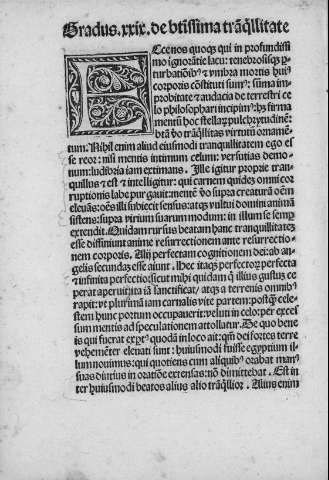 Gradus .xxix. de vtilissima trāq̄llitate
Ecce nos quoq; qui in profundissi
mo ignorātie lacu: tenebrosisq; p̱
turbatiōib⁹ & vmbra mortis hui⁹
corporis cōstituti sum⁹: sūma im/
probitate & audacia de terrestri ce
lo philosophari incipim⁹: hs firma
mentū hoc stellaꝝ pulchꝛitudinē:
bt̄a ꝟo trāq̄llitas virtutū ornamē/
tum. Nihil enim aliud eiusmodi tranquillitatem ego es
se reor: nisi mentis intimum celum: versutias demo-
num: ludibria iam extimans. Ille igitur proprie tran-
quillus & est & intelligitur: qui carnem quidem omni cor
ruptionis labe purgauit: mentē ꝟo supra creaturā oēm
eleuās: oēs illi subiecit sensus: atq; vultui domini animā
sistens: supra virium suarum modum: in illum se semp̱
extendit. Quidam rursus beatam hanc tranquillitatē
esse diffiniunt anime resurrectionem ante resurrectio-
nem corporis. Alij perfectam cognitionem dei: ab an-
gelis secundaȝ esse aiunt. Hec itaq; perfectoꝝ perfecta
& infinita perfectio: sicut mihi quidam q̄ illius gustū ce
perat aperuit: ita iā sanctificat: atq; a terrenis omnib⁹
rapit: vt plurimā iam carnalis vite partem: postq̄ cele-
stem hunc portum occupauerit: veluti in celo: per exces
sum mentis ad speculationem attollatur. De quo bene
is qui fuerat exp̱t⁹ quodā in loco ait: qm̄ dei fortes terre
vehementer eleuati sunt: huiusmodi fuisse egyptium il-
lum nouimus: qui quotiens cum aliquib⁹ orabat man⁹
suas diutius in oratiōe extensas: nō dimittebat. Est in
ter huiusmodi beatos alius alio trāq̄llior. Alius enim